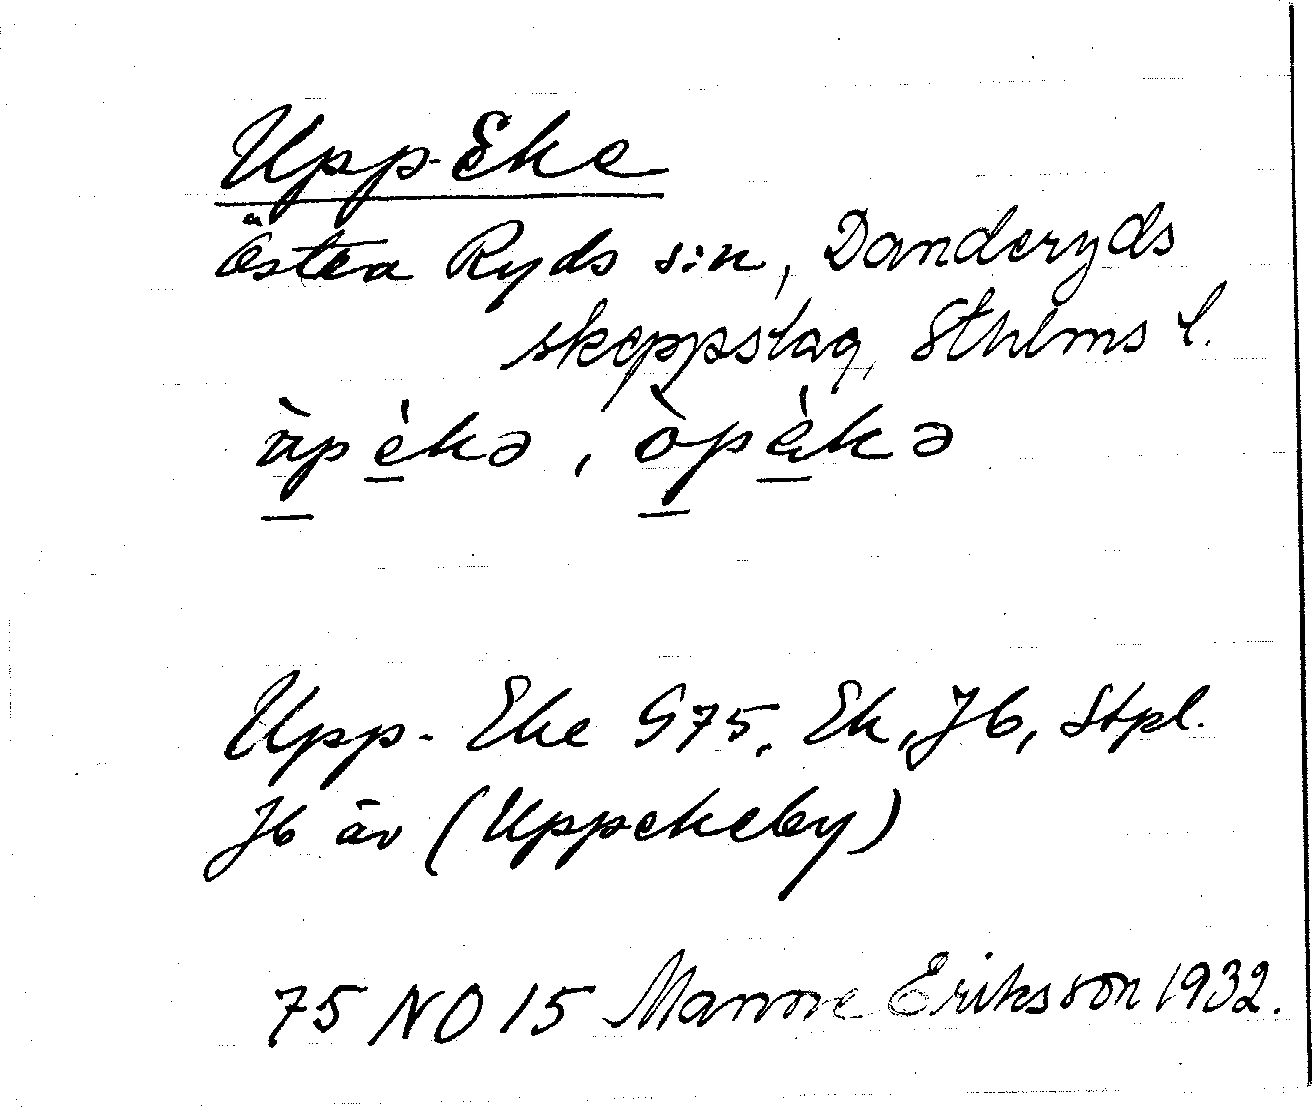 Upp-Eke
Östra Ryds sn, Danderyds
skeppslag, Sthlms l.
ùpèkə, òpèkə
Upp-Eke G75, Ek, Jb, Stpl.
Jb äv (Uppekeby)
75 NO 15 Manne Eriksson 1932.